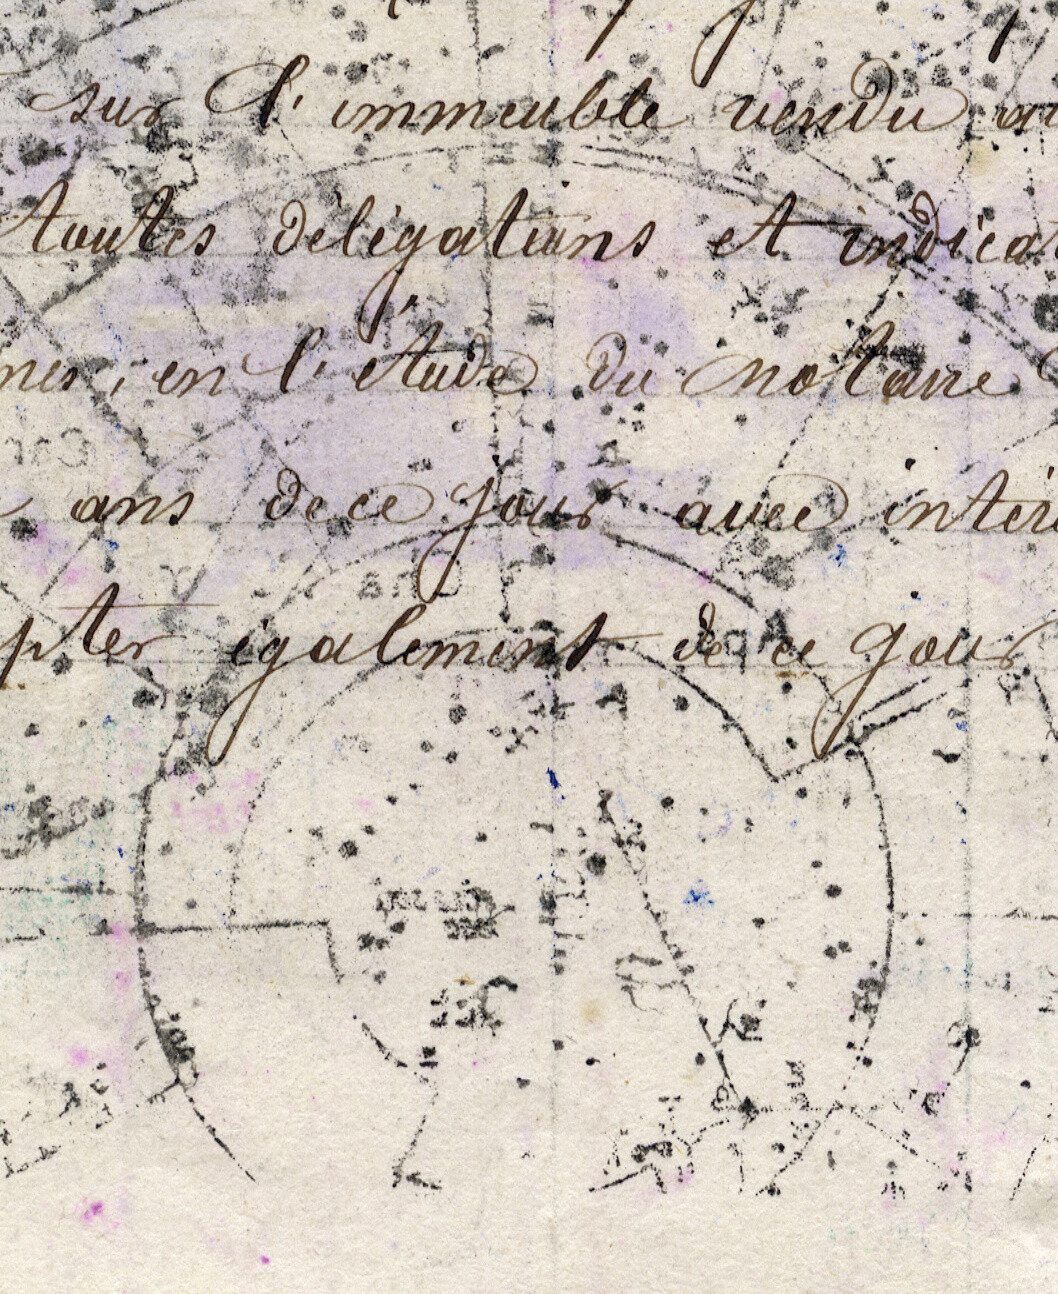 sur l'immeuble vendu
toutes délégations et indica
nes, en l'étude du notaire
ans de ce jour avec intér
pter également de ce jour